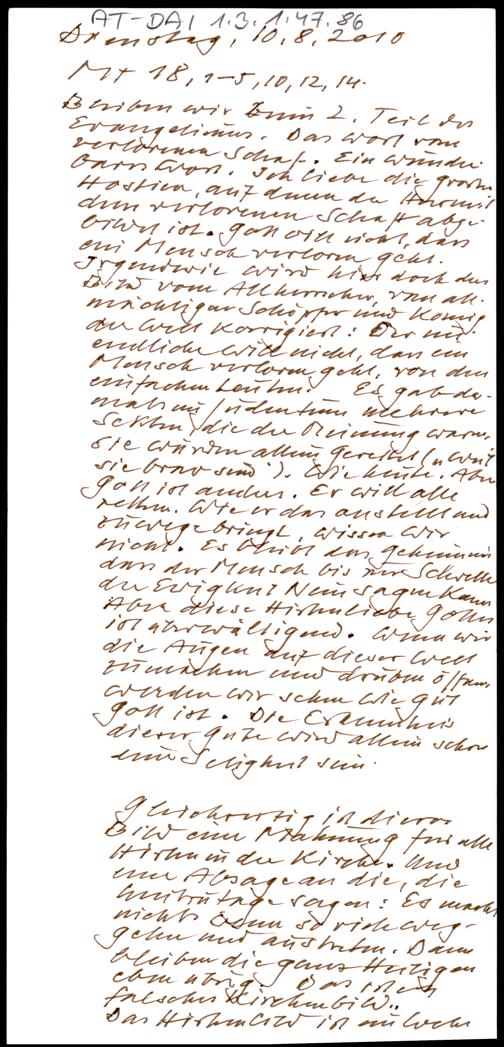 AT-DAI 1.3.1.47.86
Dienstag, 10.8.2010
Mt 18, 1-5, 10, 12, 14.
Bleiben wir beim 2. Teil des
Evangeliums. Das Wort vom
verlorenen Schaf. Ein wunder
bares Wort. Ich liebe die großen
Hostien, auf denen der Hirte mit
dem verlorenen Schaf abge-
bildet ist. Gott will nicht, dass
ein Mensch verloren geht.
Irgendwie wird hier doch das
Bild vom Allherrscher, vom all-
mächtigen Schöpfer und König
der Welt korrigiert: Der un
endliche will nicht, dass ein
Mensch verloren geht, von den
einfachen Leuten. Es gab da-
mals im Judentum mehrere
Sekten, die der Meinung waren,
sie würden allein gerettet (" weil
sie brav sind"). Wie heute. Aber
Gott ist anders. Er will alle
retten. Wie er das anstellt und
zuwege bringt, wissen wir
nicht. Es bleibt das Geheimnis
dass der Mensch bis zur Schwelle
der Ewigkeit Nein sagen kann
Aber diese Hirtenliebe Gottes
ist überwältigend. Wenn wir
die Augen auf dieser Welt
zumachen und drüben öffnen,
werden wir sehen wie gut
Gott ist. Die Erkenntnis
dieser Güte wird allein schon
eine Seligkeit sein.
Gleichzeitig ist dieses
Bild eine Mahnung für alle
Hirten in der Kirche. Und
eine Absage an die, die
heutzutage sagen: Es macht
nichts wenn so viele weg-
gehen und austreten. Dann
bleiben die ganz Heiligen
eben übrig. Das ist ein
falsches Kirchenbild..
Das Hirtenbild ist ein